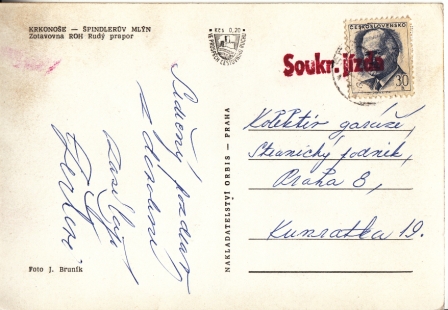 KRKONOŠE — ŠPINDLERŮV MLÝN
Zotavovna ROH Rudý prapor
Kčs 0,20
Soukr. jízda
ČESKOSLOVENSKO
30
Srdečný pozdrav
z dovolené
zasílají
Kolektiv garáže,
Stranický podnik,
Praha 8,
Kunratka 19.
NAKLADATELSTVÍ ORBIS — PRAHA
Foto J. Bruník